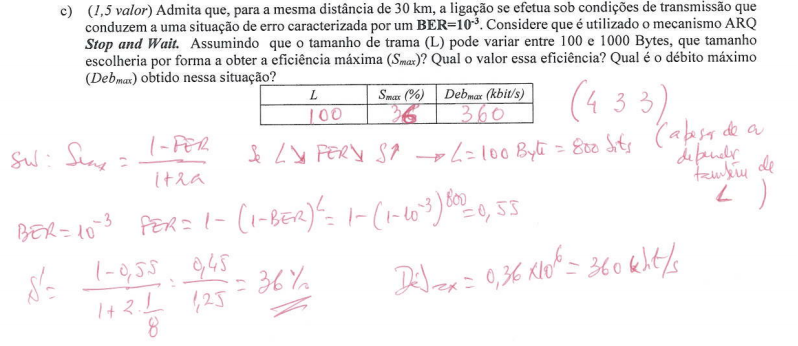 c) (1,5 valor) Admita que, para a mesma distância de 30 km, a ligação se efetua sob condições de transmissão que
conduzem a uma situação de erro caracterizada por um BER=10⁻³. Considere que é utilizado o mecanismo ARQ
Stop and Wait. Assumindo que o tamanho de trama (L) pode variar entre 100 e 1000 Bytes, que tamanho
escolheria por forma a obter a eficiência máxima (Smax)? Qual o valor essa eficiência? Qual é o débito máximo
(Debmax) obtido nessa situação?
L Smax (%) Debmax (kbit/s)
100 36 360
(4 3 3)
SW: Smax = (1-FER)/(1+2a) Se L↘ FER↘ S↑ → L=100 Byte = 800 bits
(apesar de a
depender
também de
L)
BER=10⁻³ FER = 1-(1-BER)^L = 1-(1-10⁻³)^800 = 0,55
S = (1-0,55)/(1+2·1/8) = 0,45/1,25 = 36% Débmax = 0,36 x10⁶ = 360 kbit/s